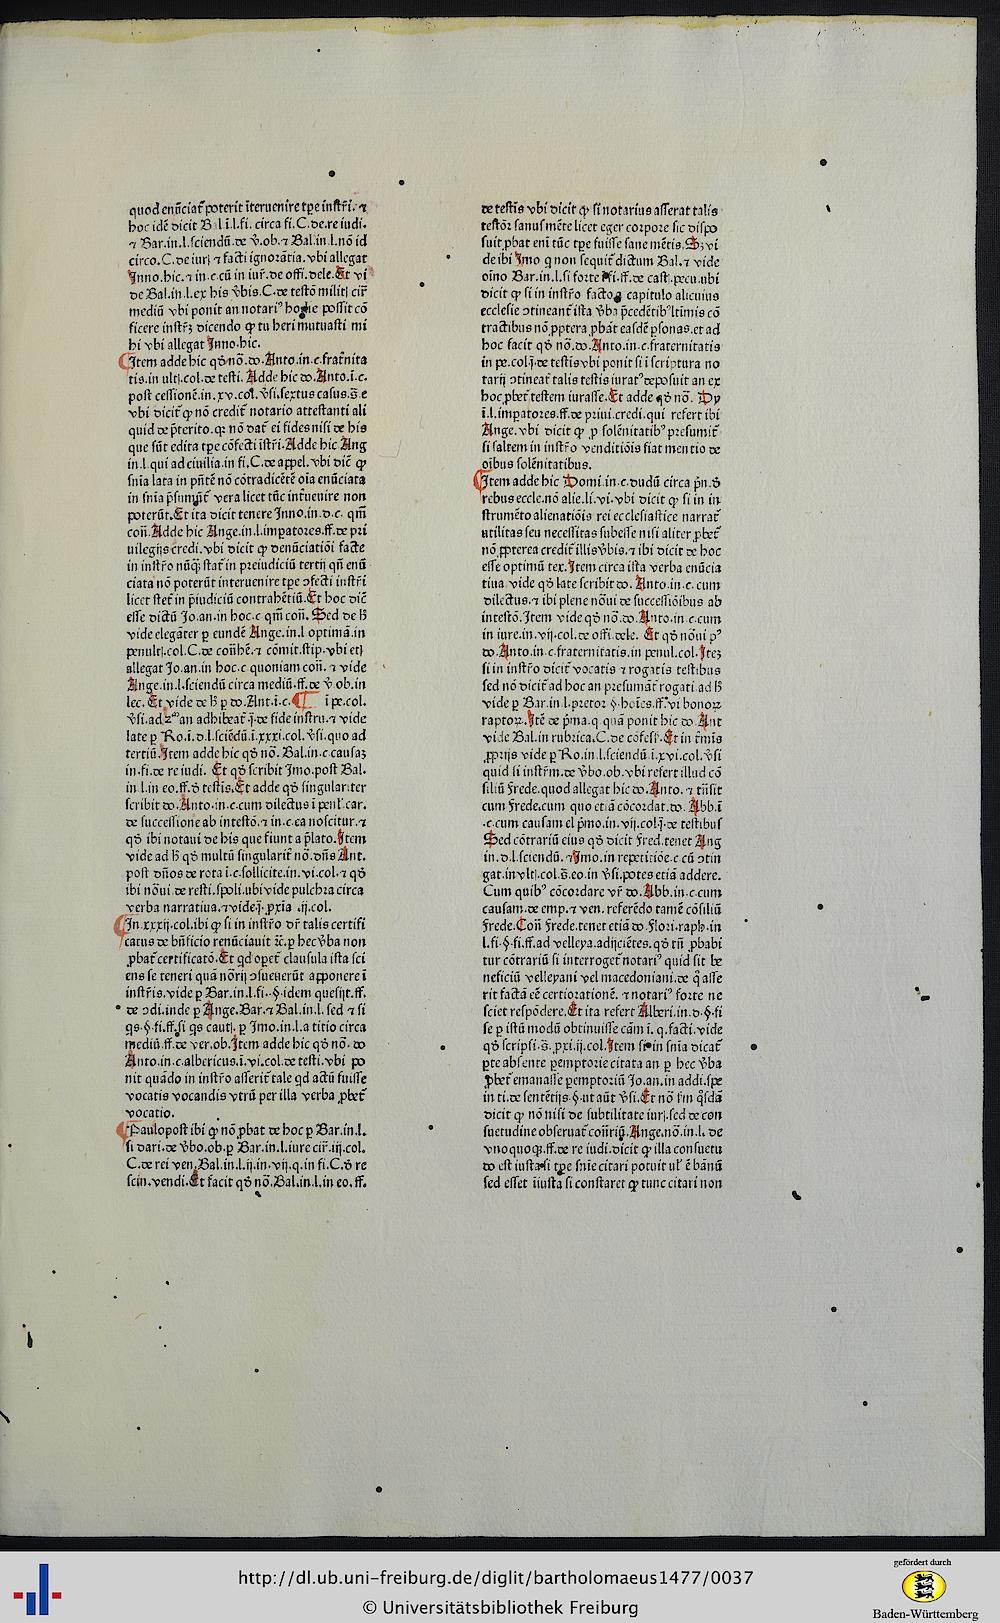 quod enūciat̄ poterit īteruenire tꝑe instr̄i. ⁊
hoc idē dicit Bal ī.l.fi. circa fi. C.de.re iudi.
⁊ Bar.in.l.sciendū.de v̄.ob.⁊ Bal.in.l.nō id
circo. C. de iurꝭ ⁊ facti ignorātia. vbi allegat
Inno.hic.⁊ in.c.cū in iur̄. de offi. dele. Et vi
de Bal.in.l.ex his v̄bis. C. de testō militꝭ cir̄
mediū vbi ponit an notariꝰ hodie possit cō
ficere instr̄ꝫ dicendo ꝙ tu heri mutuasti mi
hi vbi allegat Inno.hic.
Item adde hic qd̄ nō.do.Anto.in.c.frat̄nita
tis.in ultꝭ.col.de testi. Adde hic do.Anto.ī.c.
post cessionē.in.xv.col. v̄si.sextus casus.s̄.e
vbi dicit̄ ꝙ nō credit̄ notario attestanti ali
quid de p̄terito.qꝛ nō dat̄ ei fides nisi de his
que sūt edita tꝑe cōfecti īstr̄i. Adde hic Ang
in.l qui ad ciuilia.in fi. C. de appel. vbi dic̄ ꝙ
sn̄ia lata in pn̄tē nō cōtradicētē oīa enūciata
in sn̄ia p̄sumūt̄ vera licet tūc int̄uenire non
poterūt. Et ita dicit tenere Inno.in.d.c. qm̄
con̄. Adde hic Ange.in.l.imꝑatores.ff.de pri
uilegijs credi. vbi dicit ꝙ denūciatiōi facte
in instr̄o nūqꝫ stat̄ in preiudiciū tertij qn̄ enū
ciata nō poterūt interuenire tꝑe ɔfecti instr̄i
licet stet̄ in p̄iudiciū contrahētiū. Et hoc dic̄
esse dictū Jo.an.in hoc.c qm̄ con̄. Sed de h̄
vide elegāter ꝑ eundē Ange.in.l optimā.in
penultꝭ.col. C. de con̄hē.⁊ cōmit.stip. vbi etꝭ
allegat Jo.an.in hoc.c quoniam con̄. ⁊ vide
Ange.in.l.sciendū circa mediū.ff.de v̄.ob.in
lec. Et vide de h̄ ꝑ do.Ant.ī.c. ¶ ī pe.col.
v̄si.ad 2ᵐ an adhibeat̄ q̄.de fide instru.⁊ vide
late ꝑ Ro.ī.d.l.sciēdū.ī.xxxi.col. v̄si.quo ad
tertiū. Item adde hic qd̄ nō. Bal.in.c.causaꝫ
in.fi.de re iudi. Et qd̄ scribit Imo.post Bal.
in.l.in eo.ff.d̄ testis. Et adde qd̄ singulariter
scribit do.Anto.in.c.cum dilectus ī penl̄.car.
de successione ab intestō.⁊ in.c.ea noscitur.⁊
qd̄ ibi notaui de his que fiunt a p̄lato. Item
vide ad h̄ qd̄ multū singularit̄ nō.dn̄s Ant.
post dn̄os de rota ī.c.sollicite.in.vi.col.⁊ qd̄
ibi nōui de resti.spoli.ubi vide pulchra circa
verba narratiua.⁊ vide.j̄.ꝓxīa .ij.col.
In.xxxij.col.ibi ꝙ si in instr̄o dr̄ talis certifi
catus de bn̄ficio renūciauit ⁊c̄.ꝑ hec v̄ba non
ꝓbat̄ certificatō. Et qd opet̄ clausula ista sci
ens se teneri quā nōrij ɔsueuerūt apponere ī
instr̄is.vide ꝑ Bar.in.l.fi. §.idem quesijt.ff.
de ɔdi.inde ꝑ Ange.Bar.⁊ Bal.in.l. sed ⁊ si
qs.§.fi.ff.si qs cautꝭ. ꝑ Imo.in.l.a titio circa
mediū.ff.de ver.ob. Item adde hic qd̄ nō. do
Anto.in.c.albericus.ī.vi.col.de testi.vbi po
nit quādo in instr̄o asserit̄ tale qd actū fuisse
vocatis vocandis vtrū per illa verba ꝓbet̄
vocatio.
Paulopost ibi ꝙ nō ꝓbat de hoc ꝑ Bar.in.l.
si dari.de v̄bo.ob.ꝑ Bar.in.l.iure cir̄.iij.col.
C.de rei ven. Bal.in.l.ij.in.vij.q.in fi. C.d̄ re
scin.vendi. Et facit qd̄ nō. Bal.in.l.in eo.ff.
de testis vbi dicit ꝙ si notarius asserat talis
testōr sanus mēte licet eger corpore sic dispo
suit ꝓbat eni tūc tꝑe fuisse sane mētis. Sꝫ vi
de ibi Imo q non sequit̄ dictum Bal.⁊ vide
oīno Bar.in.l.si forte §.fi.ff.de cast.pecu.ubi
dicit ꝙ si in instr̄o facto a capitulo alicuius
ecclesie ɔtineant̄ ista v̄ba p̄cedētibꝰ ltimis cō
tractibus nō ꝓptera ꝓbāt easdē ꝑsonas.et ad
hoc facit qd̄ nō.do.Anto.in.c.fraternitatis
in pe.col.q̄.de testis vbi ponit si ī scriptura no
tarij ɔtineat̄ talis testis iuratꝰ deposuit an ex
hoc ꝓbet̄ testem iurasse. Et adde qd̄ nō. Dy
ī.l.imꝑatores.ff.de priui.credi.qui refert ibi
Ange. vbi dicit ꝙ ꝓ solēnitatibꝰ presumit̄
si saltem in instr̄o venditiōis fiat mentio de
oībus solēnitatibus.
Item adde hic Domi.in.c.dudū circa pn̄.d̄
rebus eccle.nō alie.li.vi.vbi dicit ꝙ si in in
strumēto alienatiōis rei ecclesiastice narrat̄
utilitas seu necessitas subesse nisi aliter ꝓbet̄
nō ꝓpterea credit̄ illis v̄bis.⁊ ibi dicit de hoc
esse optimū tex. Item circa ista verba enūcia
tiua vide qd̄ late scribit do. Anto.in.c. cum
dilectus.⁊ ibi plene nōui de successiōibus ab
intestō. Item vide qd̄ nō.do.Anto.in.c.cum
in iure.in.vij.col.de offi.dele. Et qd̄ nōui pꝰ
do.Anto.in.c.fraternitatis.in penul.col. Iteꝫ
si in instr̄o dicit̄ vocatis ⁊ rogatis testibus
sed nō dicit̄ ad hoc an presumāt̄ rogati ad h̄
vide ꝑ Bar.in.l.pretor §.hoīes.ff.vi bonoꝝ
raptoꝝ. Itē de p̄ma.q.quā ponit hic do. Ant
vide Bal.in rubrica. C. de cōfesꝭ. Et in t̄mīs
ꝓprijs vide ꝑ Ro.in.l.sciendū.ī.xvi.col. v̄si
quid si instr̄m.de v̄bo.ob.vbi refert illud cō
siliū Frede.quod allegat hic do.Anto. ⁊ tn̄sit
cum Frede.cum quo etiā cōcordat.do. Abb.ī
.c.cum causam el p̄mo.in.vij.col.q̄.de testibus
Sed cōtrariū eius qd̄ dicit Fred.tenet Ang
in.d.l.sciendū. ⁊ Imo.in repetitiōe.c.cū ɔtin
gat.in vltꝭ.col.s̄.eo.in v̄si.potes etiā addere.
Cum quibꝰ cōcordare vr̄ do. Abb.in.c.cum
causam.de emp.⁊ ven.referēdo tamē cōsiliū
Frede. Con̄ Frede.tenet etiā do.Flori.raph.in
l.fi.§.fi.ff.ad velleya.adijciētes.qd̄ tn̄ ꝓbabi
tur cōtrariū si interroget̄ notariꝰ quid sit be
neficiū velleyani vel macedoniani.de qͥ asse
rit factā eē certiorationē. ⁊ notariꝰ forte ne
sciet respōdere. Et ita refert Alberi.in.d.§.fi
se ꝑ istū modū obtinuisse cām ī. q.facti.vide
qd̄ scripsi.s̄. ꝓxi.ij.col. Item si in sn̄ia dicat̄
ꝑte absente ꝑemptorie citata an ꝑ hec v̄ba
ꝓbet̄ emanasse ꝑemptoriū Jo.an.in addi.spe
in ti.de sentētijs.§.ut aūt v̄si. Et nō s̄m qͦsdā
dicit ꝙ nō nisi de subtilitate iurꝭ.sed de con
suetudine obseruat̄ con̄riū. Ange.nō.in.l. de
vno quoqꝫ.ff.de re iudi.dicit ꝙ illa consuetu
do est iusta si tꝑe sn̄ie citari potuit ul̄ ē bānū
sed esset īiusta si constaret ꝙ tunc citari non
http://dl.ub.uni-freiburg.de/diglit/bartholomaeus1477/0037
© Universitätsbibliothek Freiburg
gefördert durch
Baden-Württemberg